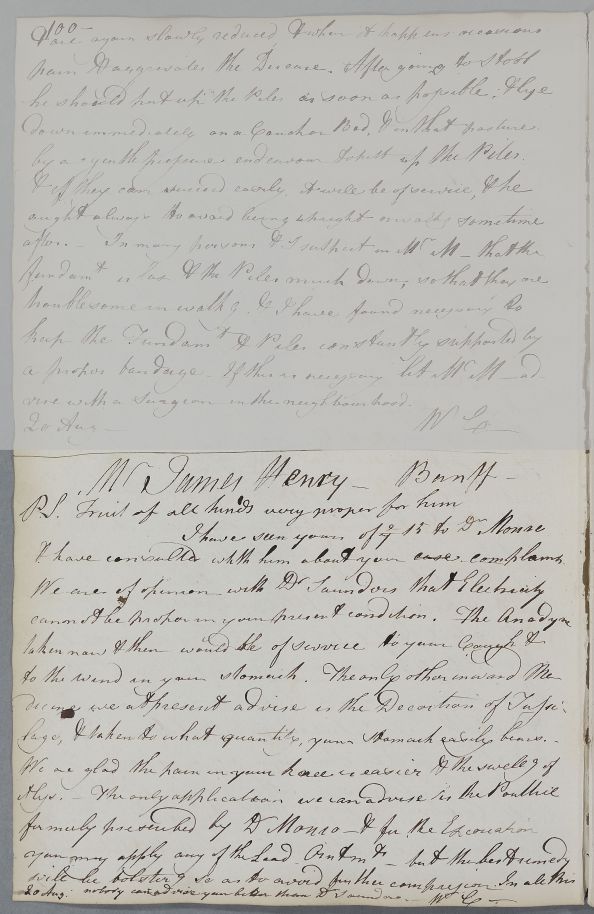 100
are again slowly reduced & when it happens occasions
pain & aggravates the Disease. After going to stool
he should put up the Piles as soon as possible, & lye
down immediately on a Couch or Bed, & in that posture
by a gentle pressure endeavour to putt up the Piles.
& if they can succeed easily it will be of service, & he
ought always to avoid being upright or walkg sometime
after. — In many persons & I suspect in Mr M— that the
fundamt is lax & the Piles much down, so that they are
troublesome in walkg. & I have found necessary to
keep the Fundamt & Piles constantly supported by
a proper bandage. If this is necessary let Mr M— ad-
vise with a Surgeon in the neighbourhood.
20 Aug — W C—
Mr James Henry — Banff —
P.S. Fruit of all kinds very proper for him
I have seen yours of ye 15 to Dr Monro
& have consulted with him about your case complaint
We are of opinion with Dr Saunders that Electricity
cannot be proper in your present condition. The Anodyne
taken now & then would be of service to your Cough &
to the wind in your stomach. The only other inward Me-
dicine we at present advise is the Decoction of Tussi-
lage, & taken to what quantity, your stomach easily bears. —
We are glad the pain in your knee is easier & the swellg of
it less. — The only application we can advise is the Poultice
formerly prescribed by Dr Monro — & for the Excoriation
you may apply any of the Lead Ointmts — but the best remedy
will be bolsterg so as to avoid further compression In all this
20 Aug. nobody can advise you better than Dr Saunders. W C—